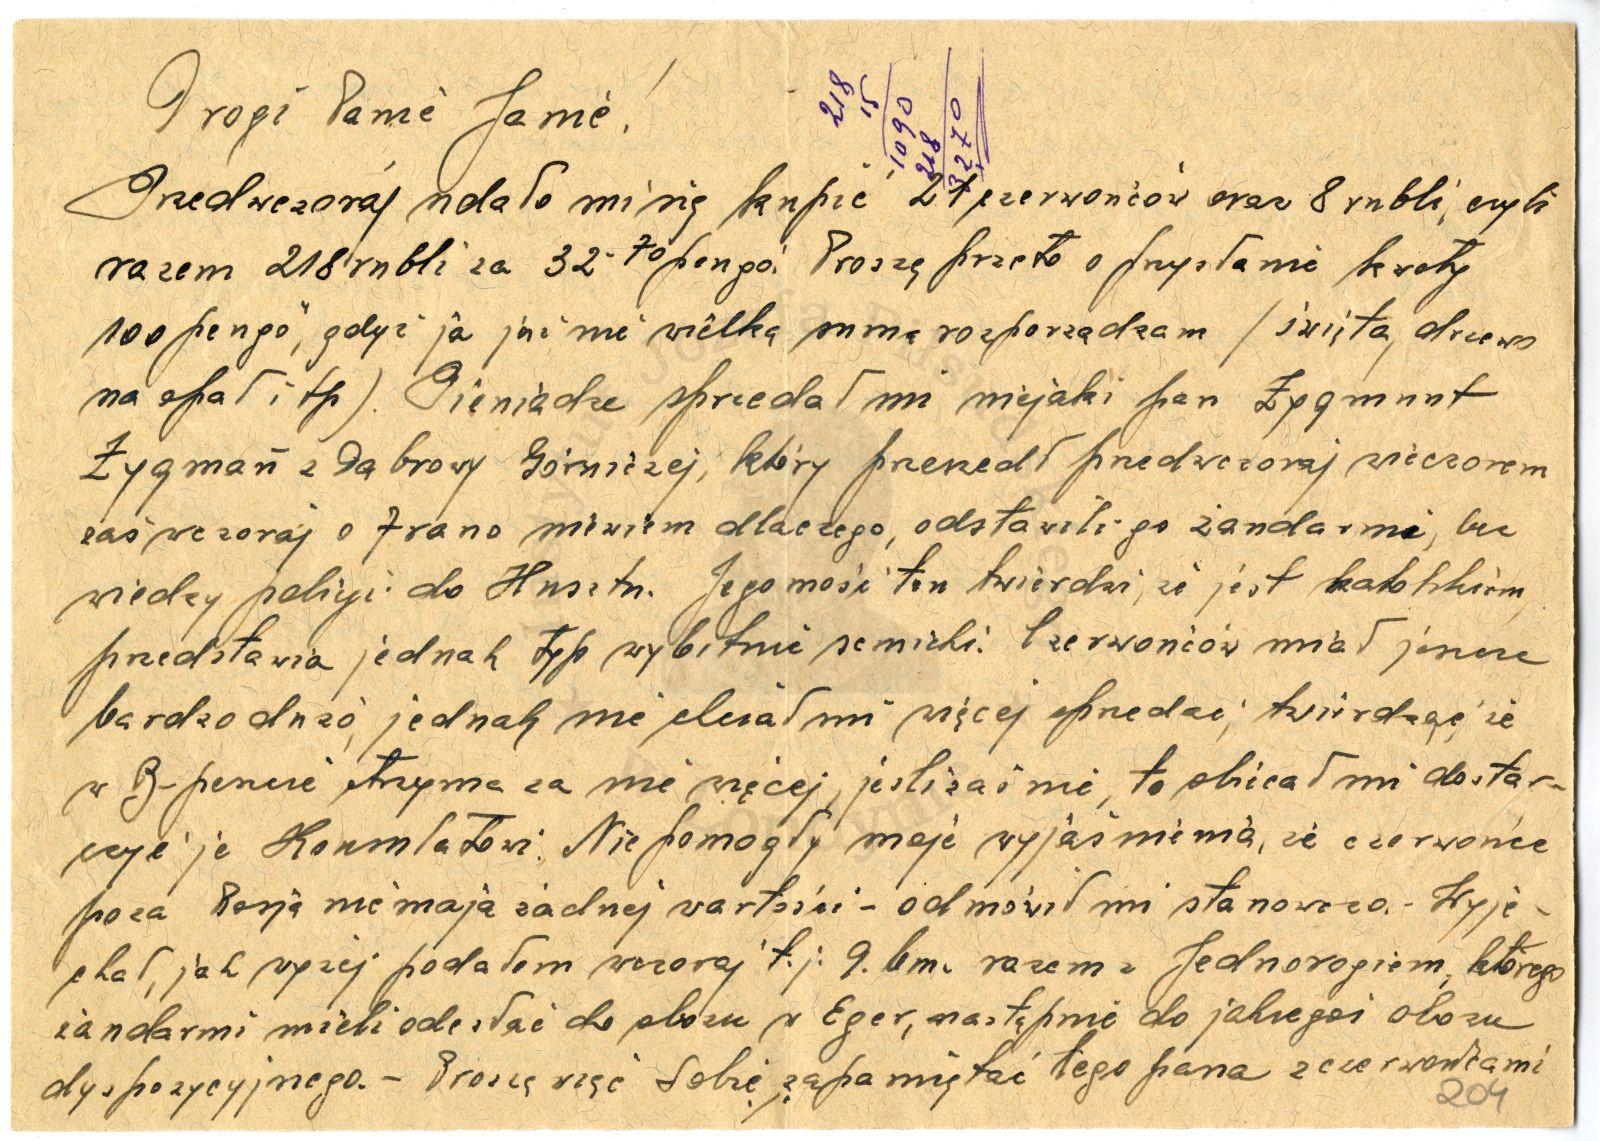 Drogi Panie Janie!
218
15
1090
218
3270
Przedwczoraj udało mi się kupić 21 czerwońców oraz 8 rubli, czyli
razem 218 rubli za 32-70 pengö. Proszę przeto o przysłanie kwoty
100 pengö, gdyż ja już nie wielką sumą rozporządzam /święta, drzewo
na opał i tp). Pieniądze sprzedał mi niejaki pan Zygmunt
Zygmań z Dąbrowy Górniczej, który przeszedł przedwczoraj wieczorem
zaś wczoraj o 7 rano niewiem dlaczego, odstawili go żandarmi, bez
wiedzy policji do Husztu. Jegomość ten twierdzi, że jest katolikiem,
przedstawia jednak typ wybitnie semicki. Czerwońców miał jeszcze
bardzo dużo, jednak nie chciał mi więcej sprzedać, twierdząc, że
w B-peszcie otrzyma za nie więcej, jeśli zaś nie, to obiecał mi dostar-
czyć je Konsulatowi. Nie pomogły moje wyjaśnienia, że czerwońce
poza Rosją nie mają żadnej wartości - odmówił mi stanowczo. - Wyje-
chał, jak wyżej podałem wczoraj t.j. 9. bm. razem z Jednorogiem, którego
żandarmi mieli odesłać do obozu w Eger, następnie do jakiegoś obozu
dyspozycyjnego. - Proszę więc Sobie zapamiętać tego pana z czerwońcami
204